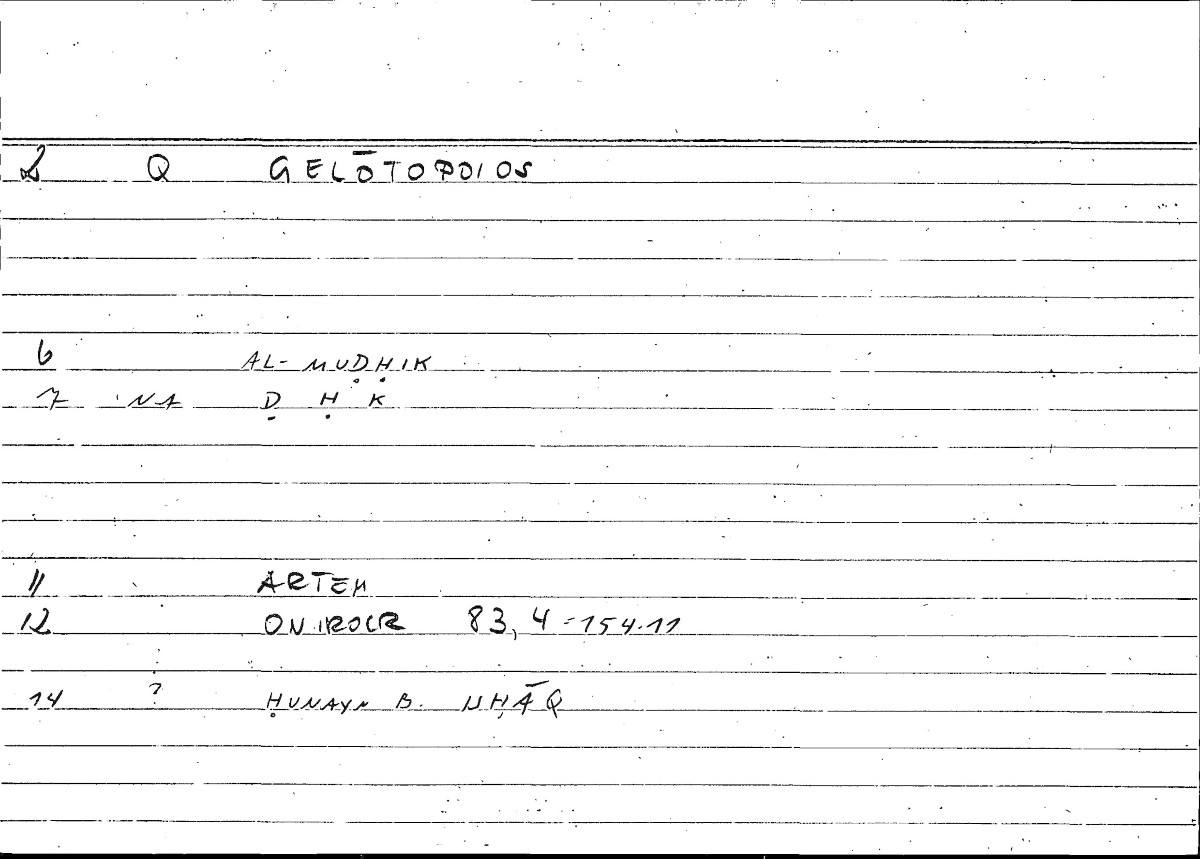 2 Q GELŌTOPOIOS
6 AL-MUḌḤIK
7 NA Ḍ Ḥ K
11 ARTEM
12 ONIROCR 83,4=154.11
14 ? ḤUNAYN B. ISḤĀQ